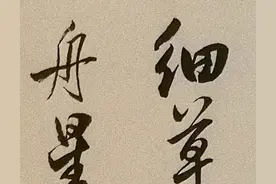 细草
舟星